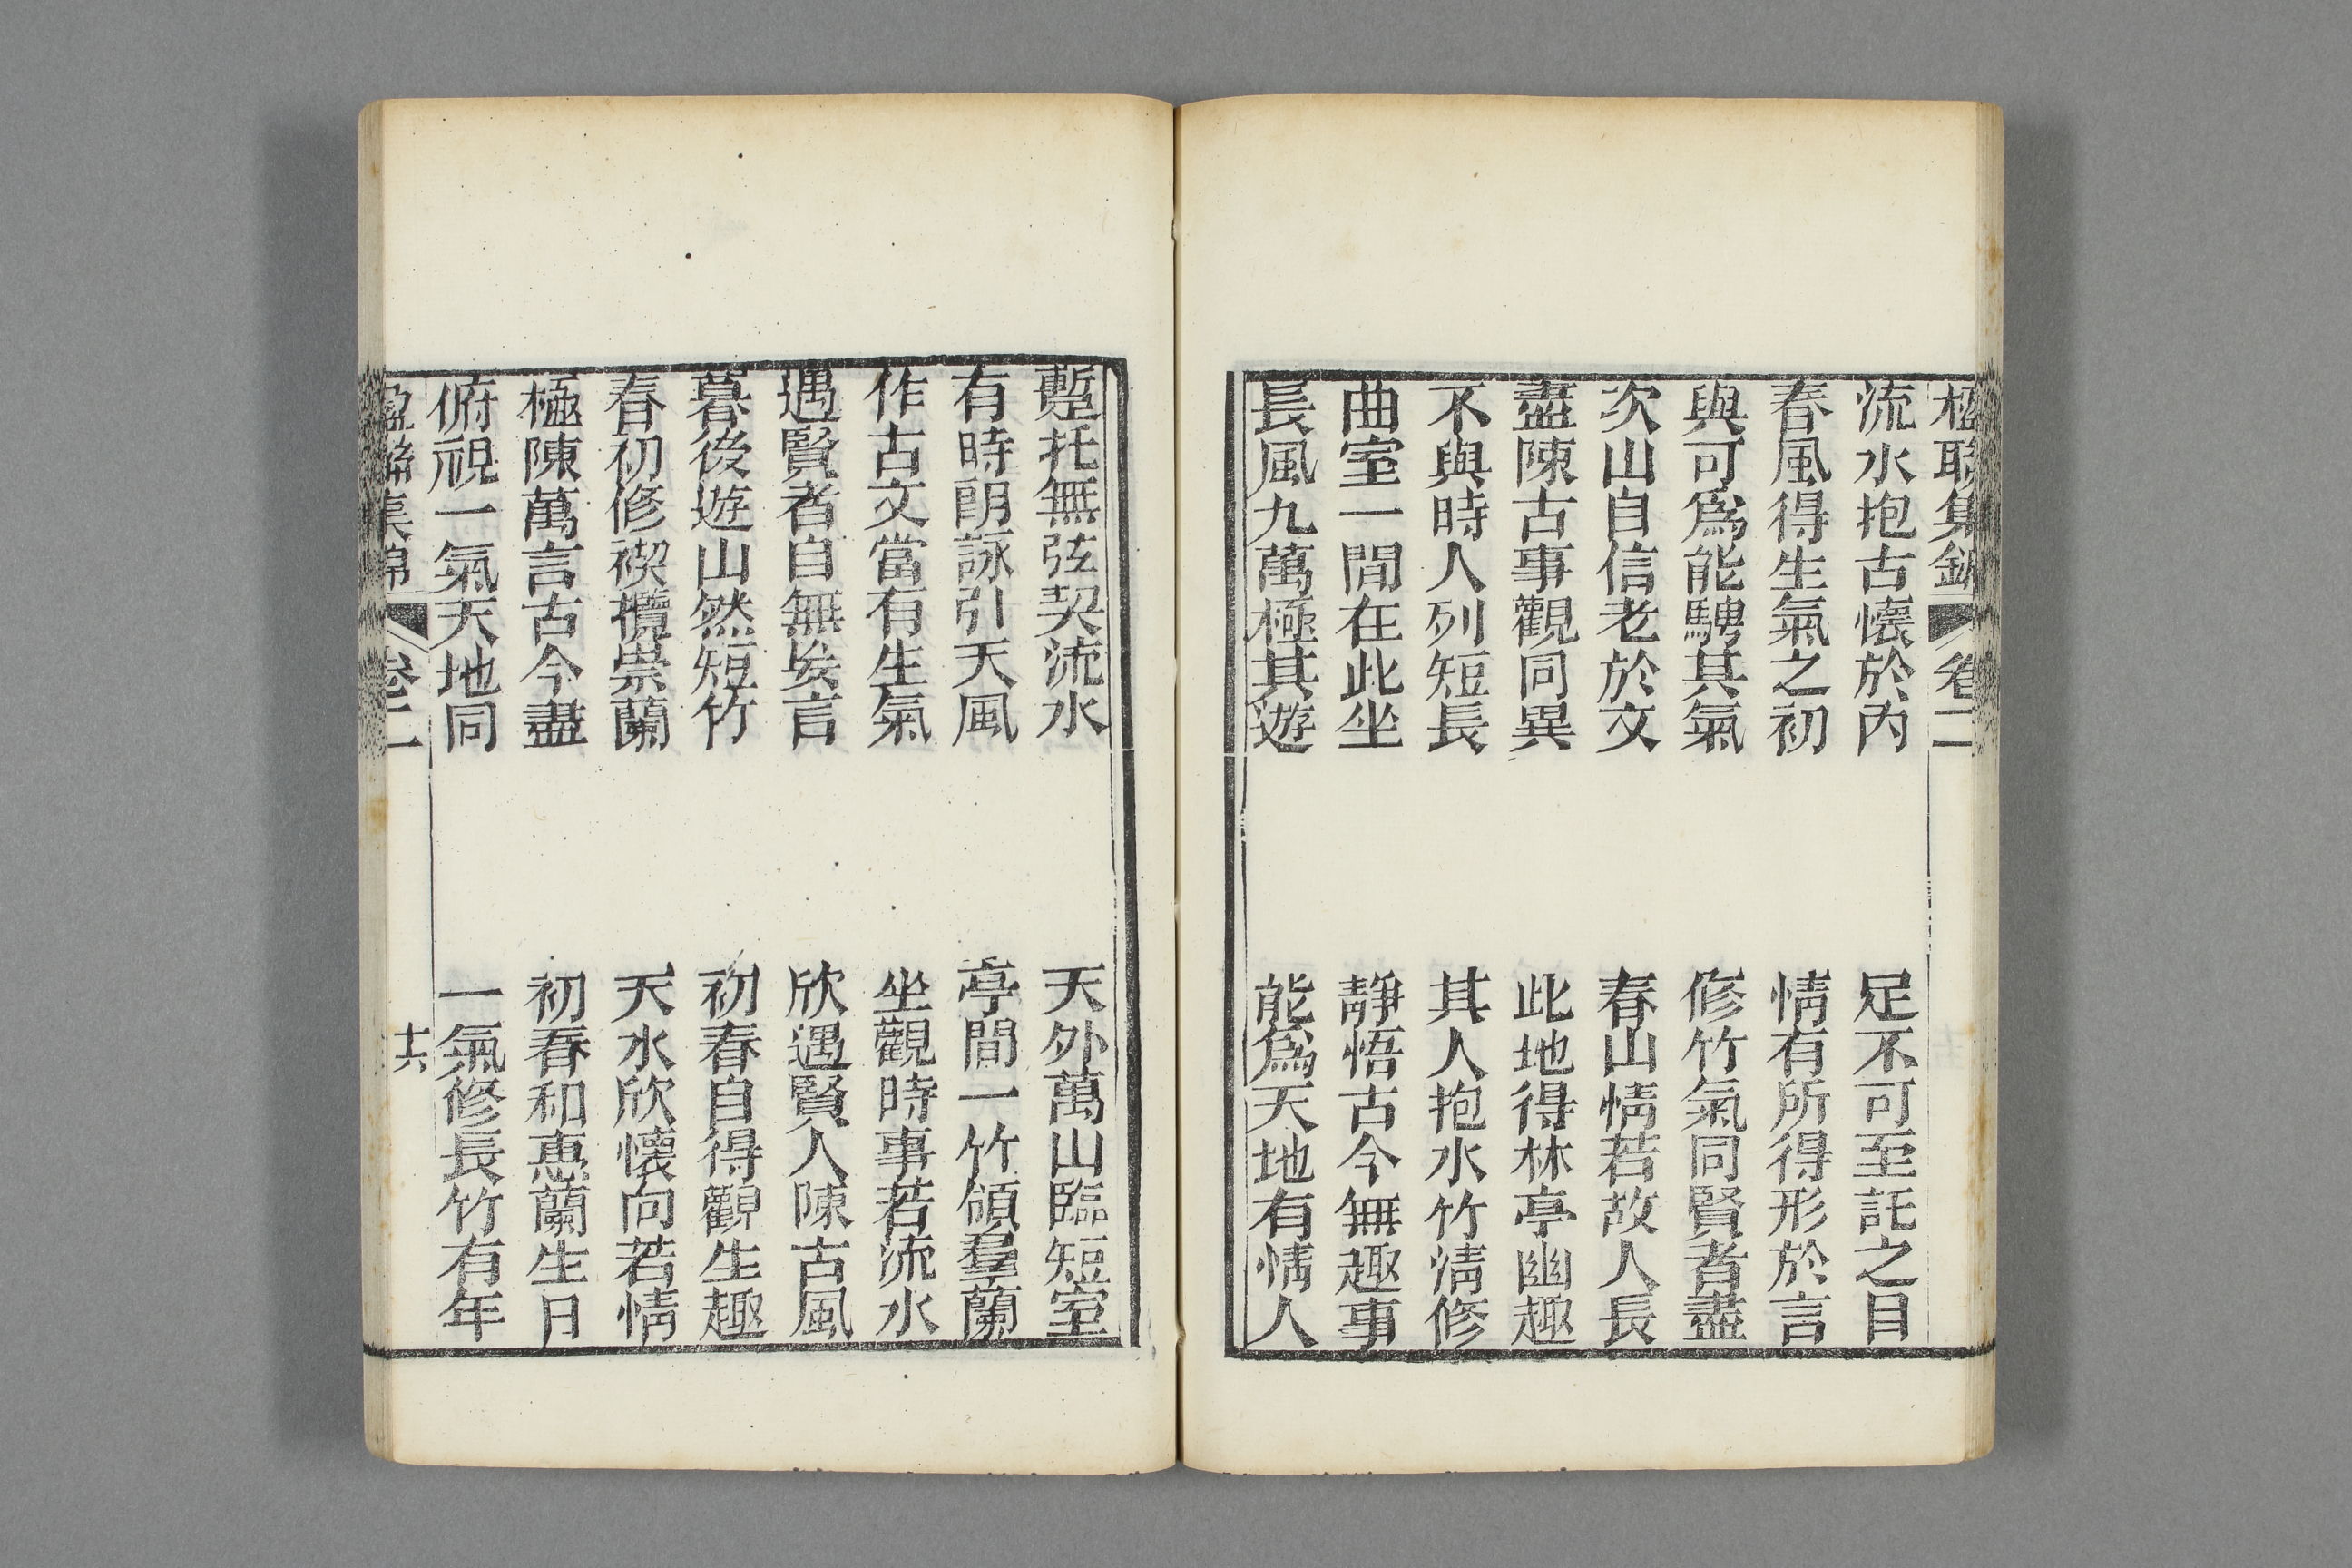 楹聯集錦 卷二
流水抱古懷於內 足不可至託之目
春風得生氣之初 情有所得形於言
與可爲能騁其氣 修竹氣同賢者盡
次山自信老於文 春山情若故人長
盡陳古事觀同異 此地得林亭幽趣
不與時人列短長 其人抱水竹淸修
曲室一間在此坐 靜悟古今無趣事
長風九萬極其遊 能爲天地有情人
蹔托無弦契流水 天外萬山臨短室
有時朗詠引天風 亭間一竹領羣蘭
作古文當有生氣 坐觀時事若流水
遇賢者自無俟言 欣遇賢人陳古風
暮後遊山然短竹 初春自得觀生趣
春初修禊攬崇蘭 天水欣懷向若情
極陳萬言古今盡 初春和惠蘭生日
俯視一氣天地同 一氣修長竹有年
楹聯集錦 卷二 十六